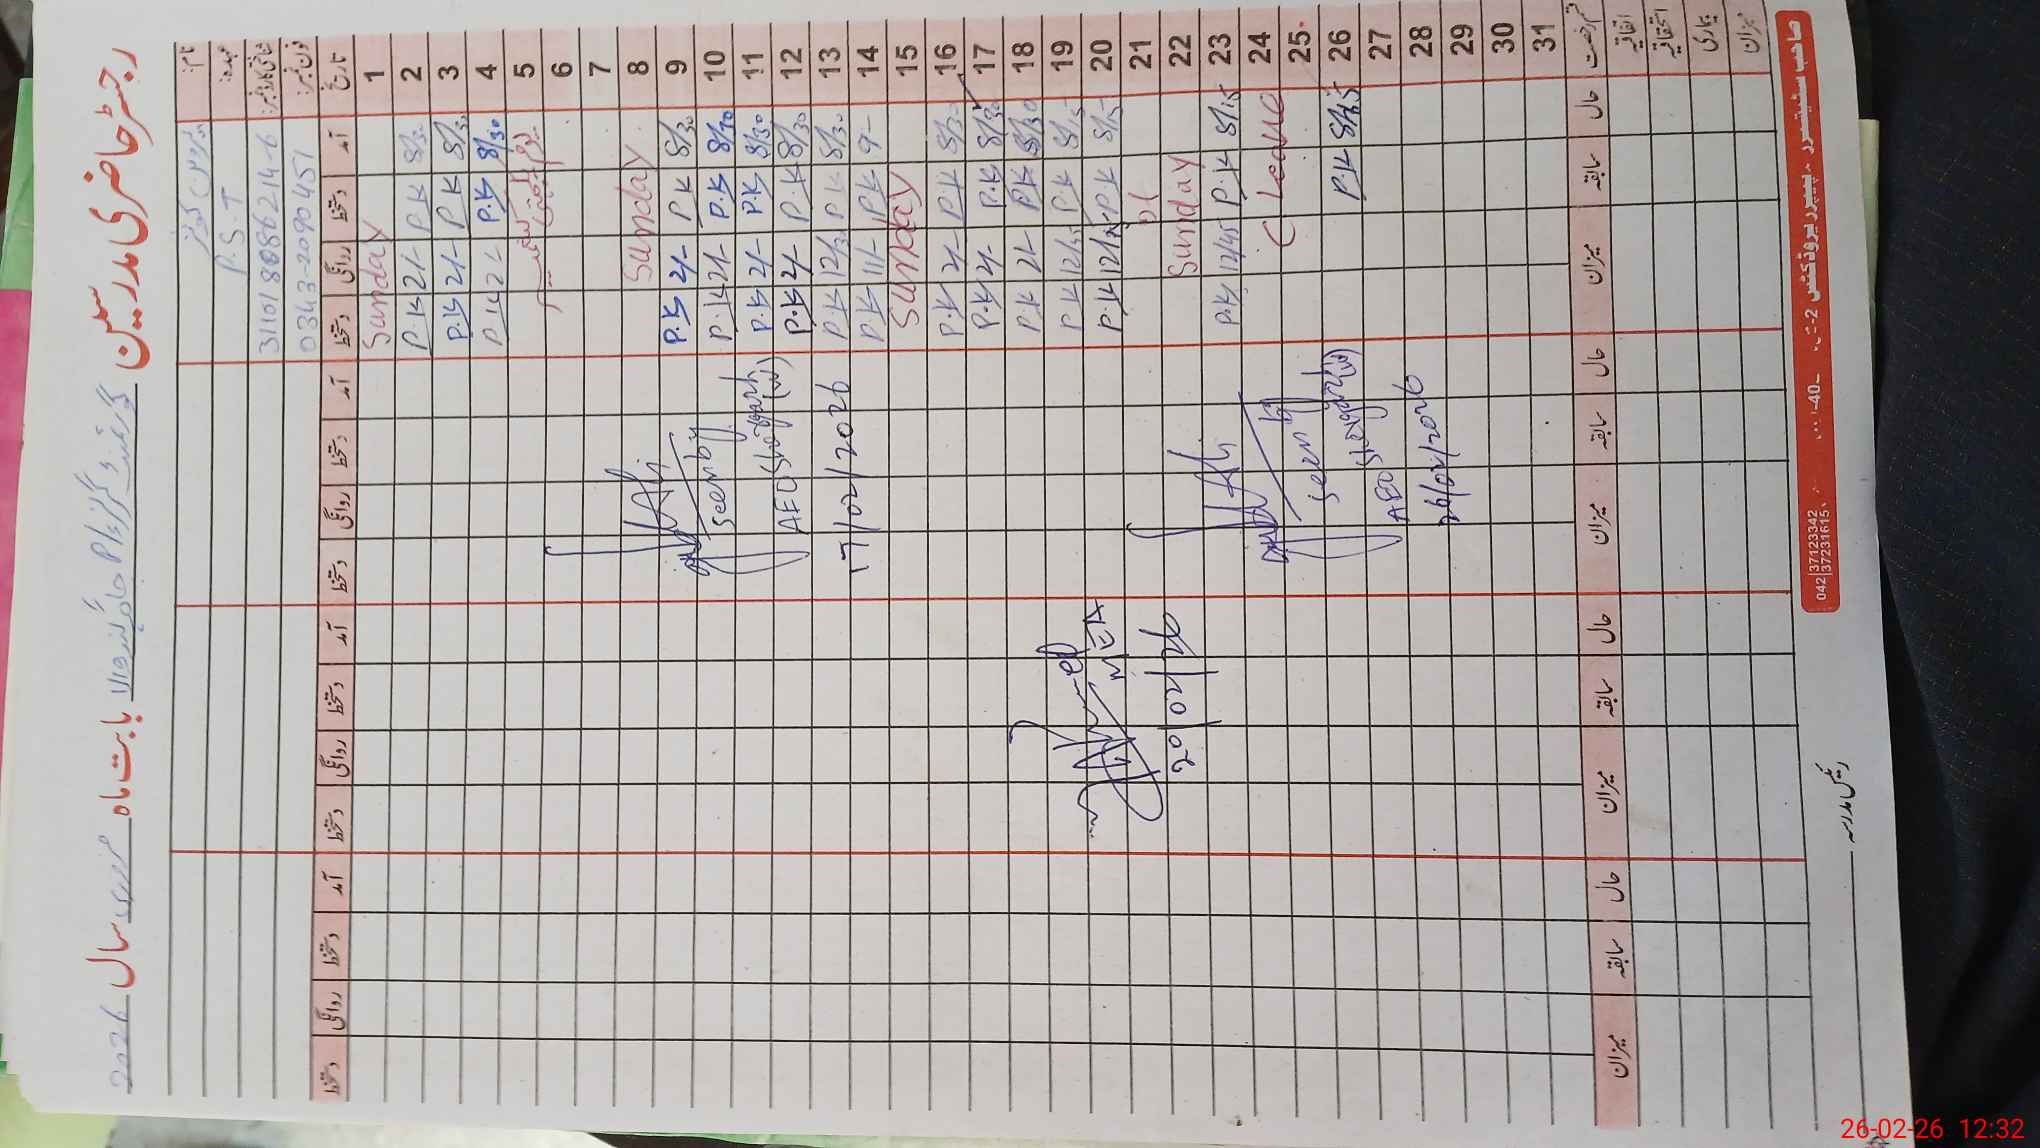 رجسٹر حاضری مدرسین گورنمنٹ گرلز پرائمری بابت ماہ فروری سال 2026
نام:
عہدہ: P.S.T
شناختی کارڈ نمبر: 31101-8086214-6
فون نمبر: 0343-2090451
تاریخ آمد دستخط روانگی دستخط آمد دستخط روانگی دستخط آمد دستخط روانگی دستخط آمد دستخط روانگی دستخط
1 Sunday
2 8/30 P.K 2/- P.K
3 8/30 P.K 2/- P.K
4 8/30 P.K 2/- P.K
5 یوم یکجہتی کشمیر
6
7
8 Sunday
9 8/30 P.K 2/- P.K
10 8/30 P.K 2/- P.K
11 8/30 P.K 2/- P.K
12 8/30 P.K 2/- P.K
13 8/30 P.K 12/30 P.K
14 9- P.K 11/- P.K
15 Sunday
16 8/30 P.K 2/- P.K
17 8/30 P.K 2/- P.K
18 8/30 P.K 2/- P.K
19 8/15 P.K 12/45 P.K
20 8/15 P.K 12/ P.K
21
22 Sunday
23 8/15 P.K 12/45 P.K
24 C Leave
25
26 8/45 P.K
27
28
29
30
31
Seen by
AEO
17/02/2026
MEA
20/02/26
Seen by
AEO
26/02/2026
قسم رخصت حال سابقہ میزان حال سابقہ میزان حال سابقہ میزان حال سابقہ میزان
اتفاقیہ
استحقاقیہ
بیماری
میزان
رئیس مدرسہ
042 37123342
37231615
26-02-26 12:32